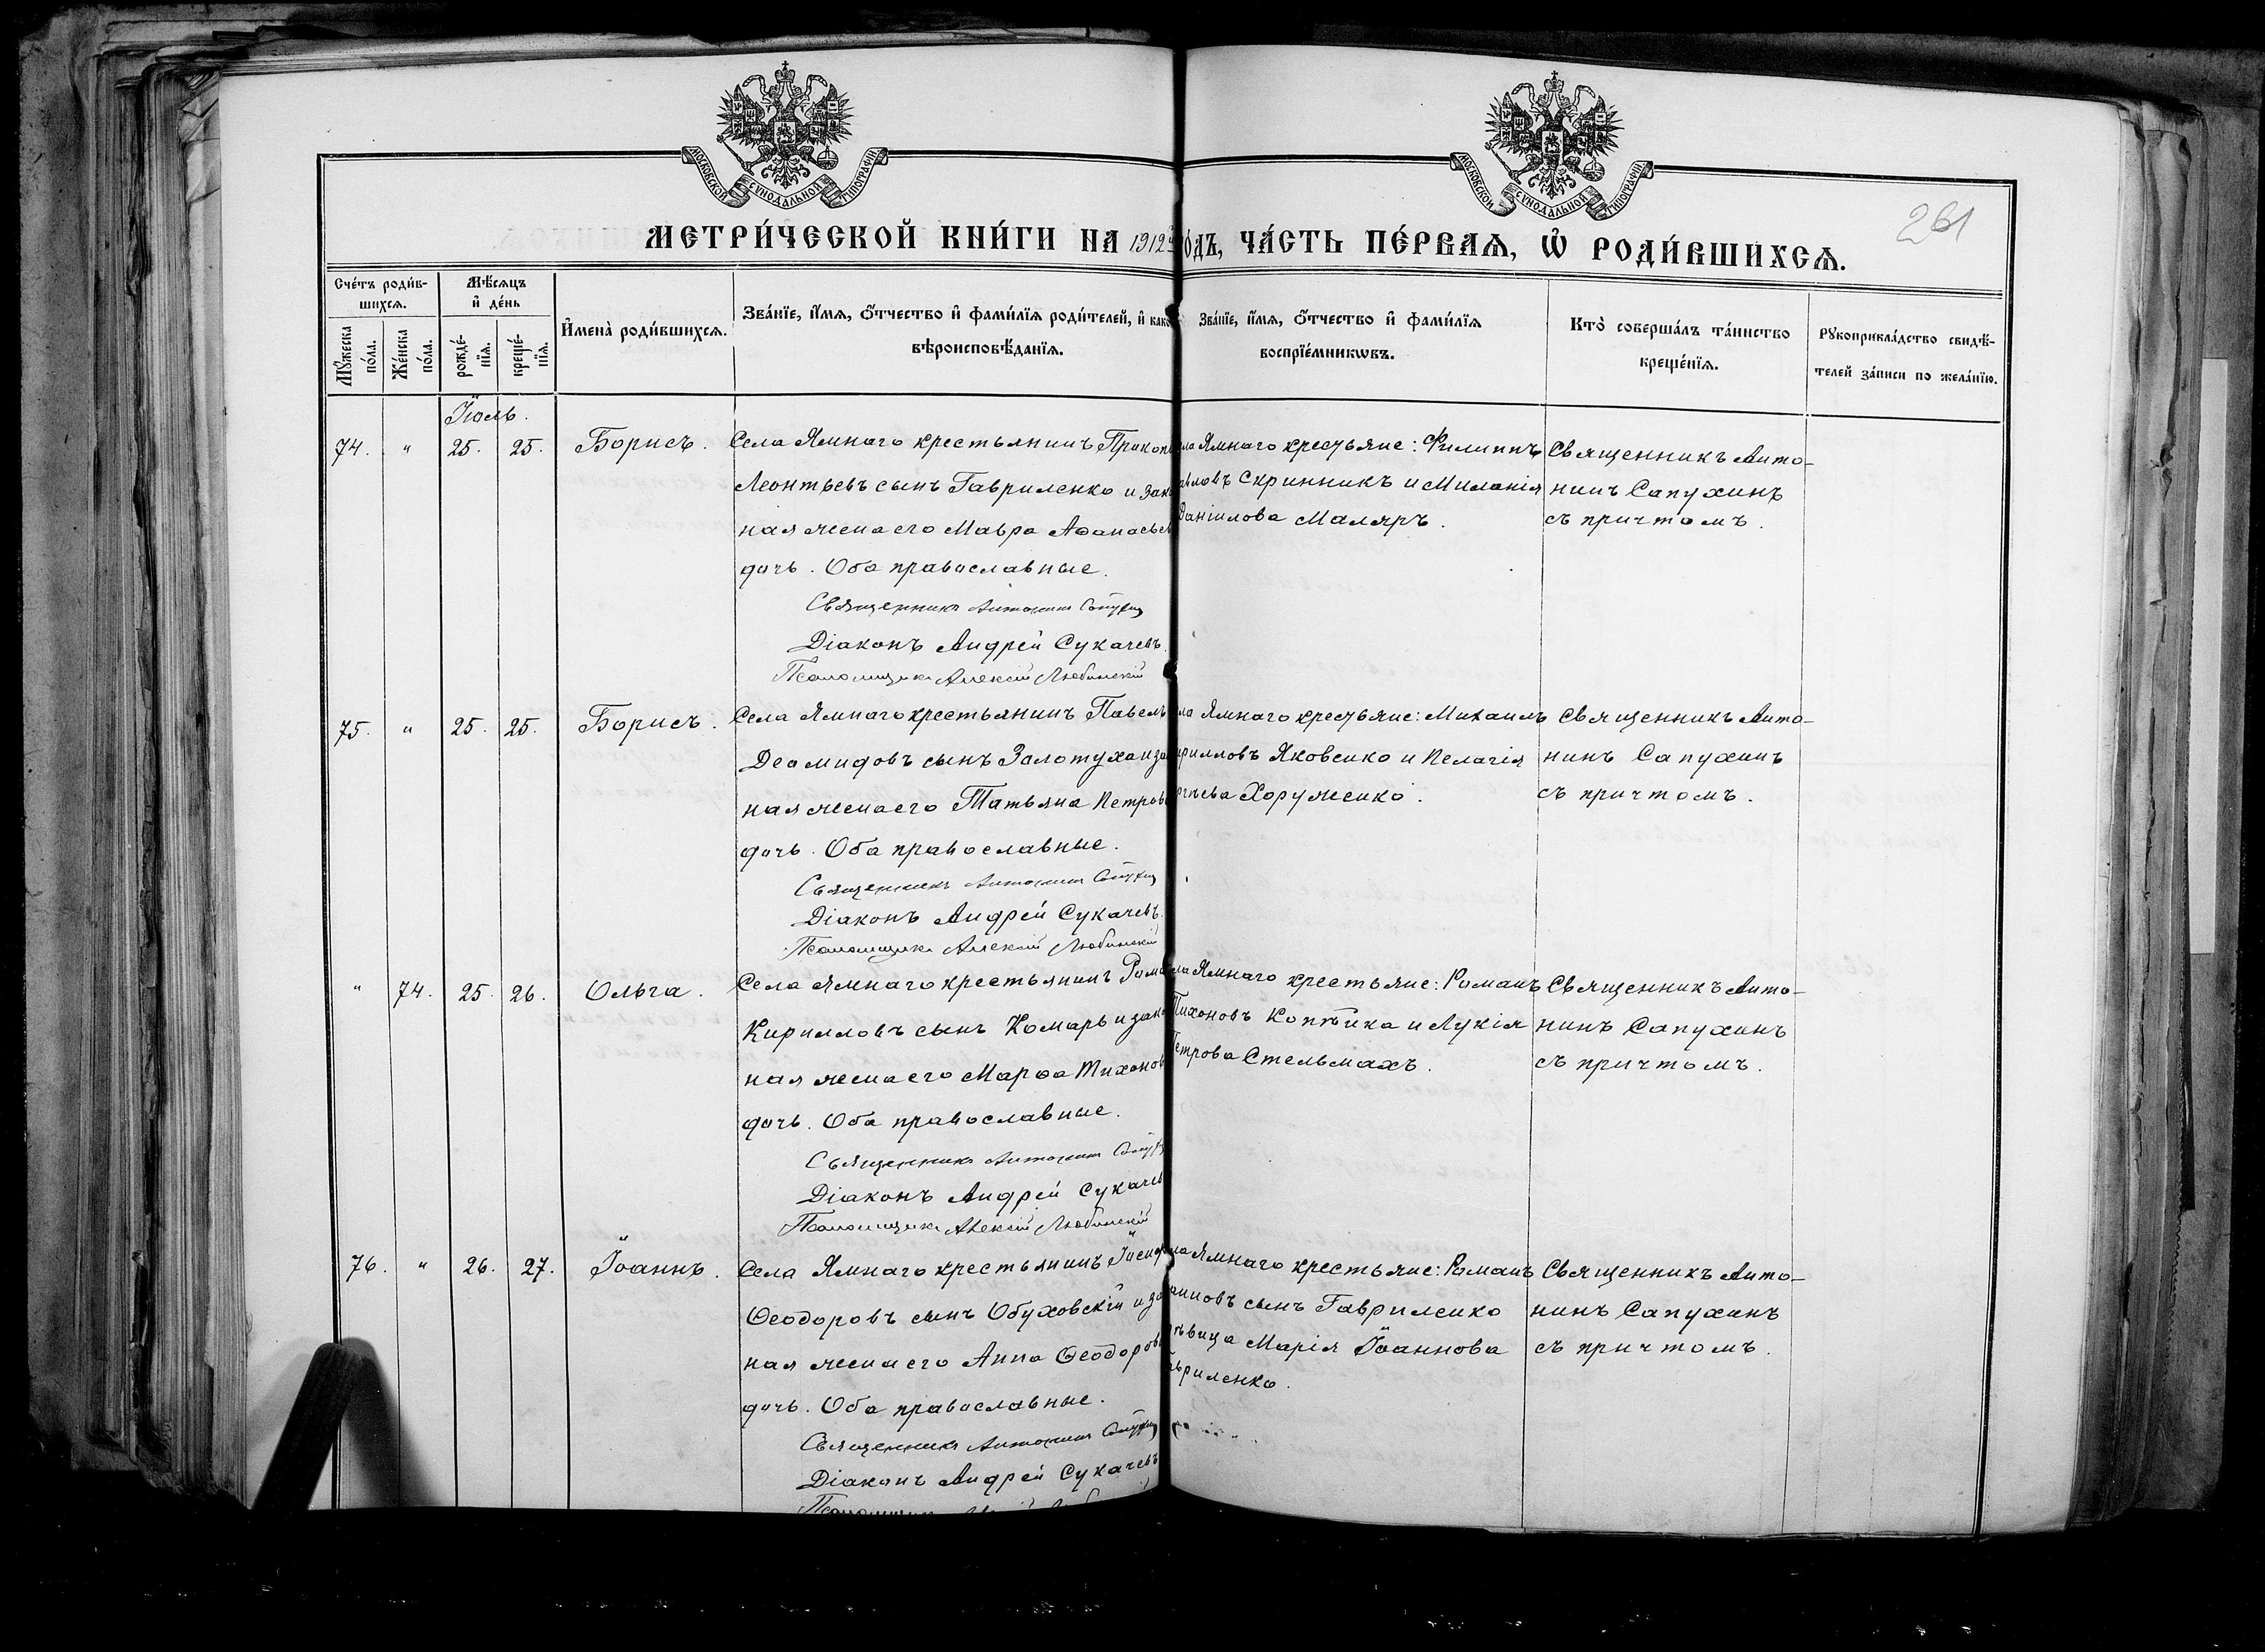 МОСКОВСКОЙ СѴНОДАЛЬНОЙ ТИПОГРАФІИ
МОСКОВСКОЙ СѴНОДАЛЬНОЙ ТИПОГРАФІИ
261
МЕТРИ́ЧЕСКОЙ КНИ́ГИ НА 1912 й
О́ДЪ, ЧА́СТЬ ПЕ́РВАѦ, Ѡ҆ РОДИ́ВШИХСѦ.
Сче́тъ роди́в-
шихсѧ.
Мѣ́сѧцъ
и҆ де́нь
Мꙋ́жеска
по́ла.
Же́нска
по́ла.
рожде́-
нїѧ.
креще́-
нїѧ.
И҆мена̀ роди́вшихсѧ.
Зва́нїе, и҆́мѧ, ѻ҆́тчество и҆ фами́лїѧ роди́телей, и҆ како
вѣроисповѣ́данїѧ.
Зва́нїе, и҆́мѧ, ѻ҆́тчество и҆ фами́лїѧ
воспрїе́мникѡвъ.
Кто̀ соверша́лъ та́инство
креще́нїѧ.
Рꙋкоприкла́дство свидѣ́-
телей за́писи по жела́нїю.
Іюль.
74. " 25. 25. Борисъ.
Села Ямнаго крестьянинъ Прокоп
Леонтьевъ сынъ Гавриленко и зако
ная жена его Мавра Аѳанасьев
дочь. Оба православные.
Священникъ Антонинъ Сапухин
Діаконъ Андрей Сукачевъ.
Псаломщикъ Алексій Любинскій
ла Ямнаго крестьяне: Филиппъ
авловъ Скринникъ и Миланія
Даніилова Маляръ.
Священникъ Анто-
нинъ Сапухинъ
съ причтомъ.
75. " 25. 25. Борисъ.
Села Ямнаго крестьянинъ Павелъ
Деомидовъ сынъ Золотуха и за
ная жена его Татьяна Петров
дочь. Оба православные.
Священникъ Антонинъ Сапухин
Діаконъ Андрей Сукачевъ.
Псаломщикъ Алексій Любинскій
ла Ямнаго крестьяне: Михаилъ
ирилловъ Яковенко и Пелагія
ргѣева Хоруженко.
Священникъ Анто-
нинъ Сапухинъ
съ причтомъ.
" 74. 25. 26. Ольга.
Села Ямнаго крестьянинъ Рома
Кирилловъ сынъ Комаръ и зако
ная жена его Марѳа Тихонов
дочь. Оба православные.
Священникъ Антонинъ Сапух
Діаконъ Андрей Сукачев
Псаломщикъ Алексій Любинскій
ла Ямнаго крестьяне: Романъ
Тихоновъ Копѣйка и Лукія
Петрова Стельмахъ.
Священникъ Анто-
нинъ Сапухинъ
съ причтомъ.
76. " 26. 27. Іоаннъ.
Села Ямнаго крестьянинъ Іосиф
Ѳеодоровъ сынъ Обуховскій и за
ная жена его Анна Ѳеодоров
дочь. Оба православные.
Священникъ Антонинъ Сапухин
Діаконъ Андрей Сукачевъ
Псаломщикъ
ла Ямнаго крестьяне: Романъ
анновъ сынъ Гавриленко
ѣвица Марія Іоаннова
авриленко.
Священникъ Анто-
нинъ Сапухинъ
съ причтомъ.